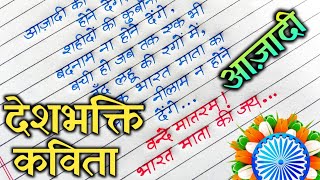 आज़ादी की
होने देंगे,
शहीदों की कुर्बानी
बदनाम ना होने देंगे,
बची हो जब तक एक भी
बूँद लहू की रगों में,
भारत माता का
नीलाम न होने
देंगे...
वन्दे मातरम!
भारत माता की जय...
आज़ादी
देशभक्ति
कविता